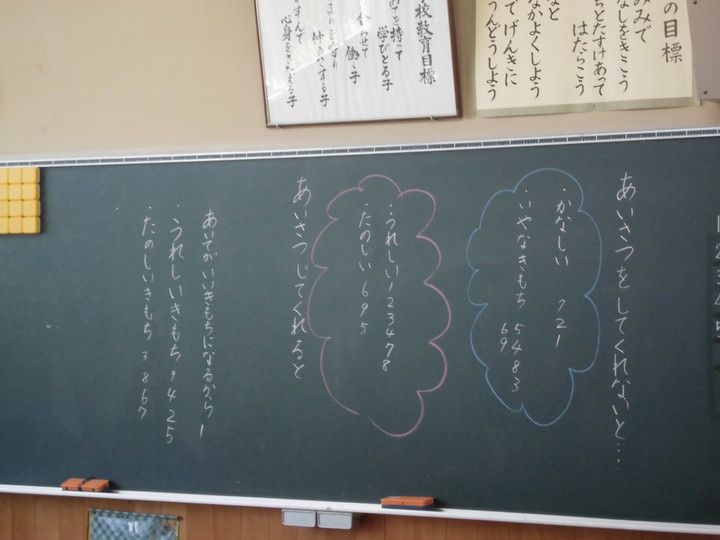 校教育目標
を持って
学びとる子
働く子
心身をきたえる子
の目標
みみで
なしをきこう
ちとたすけあって
はたらこう
なかよくしよう
でげんきに
うんどうしよう
あいさつをしてくれないと…
・かなしい 721
・いやなきもち 5483
69
・うれしい 123478
・たのしい 695
あいさつしてくれると
あいてがいいきもちになるから 1
・うれしいきもち 9425
・たのしいきもち 3867